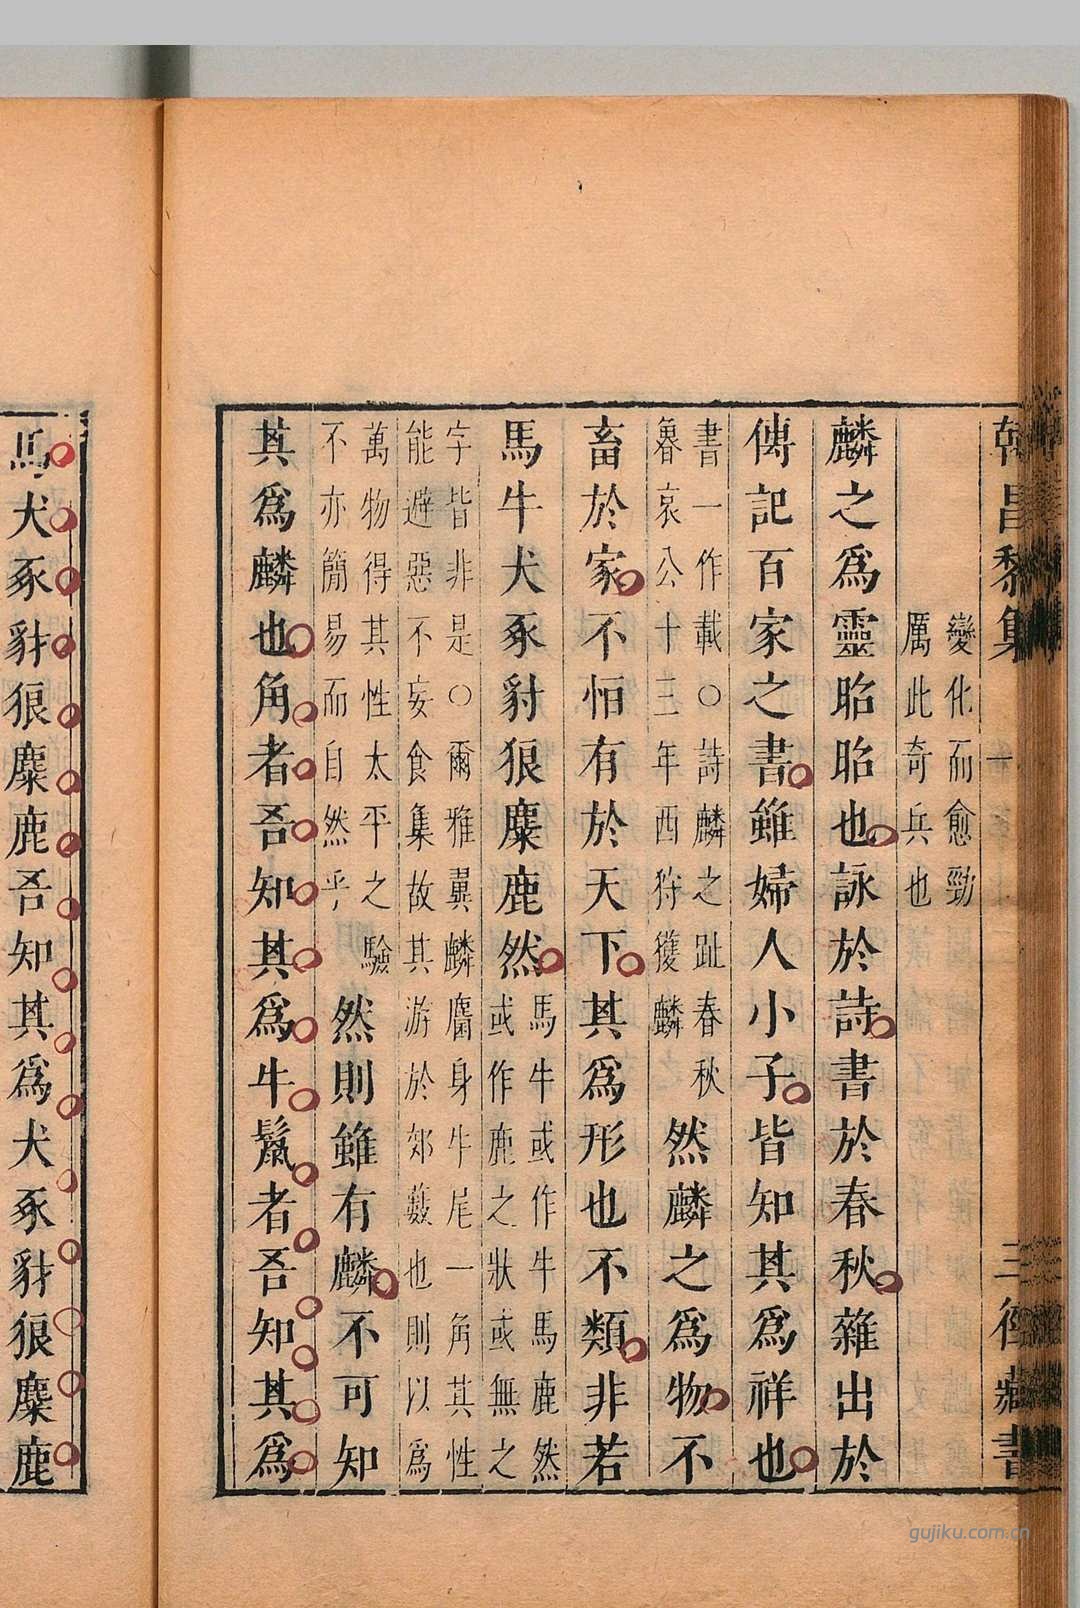 昌黎集
三徑藏書
變化而愈勁
厲此奇兵也
麟之爲靈昭昭也詠於詩書於春秋雜出於
傳記百家之書雖婦人小子皆知其爲祥也
書一作載○詩麟之趾春秋
魯哀公十三年西狩獲麟
然麟之爲物不
畜於家不怕有於天下其爲形也不類非若
馬牛犬豕豺狼麋鹿然
馬牛或作牛馬鹿然
或作鹿之狀或無之
字皆非是○爾雅翼麟麕身牛尾一角其性
能避惡不妄食集故其游於郊藪也則以爲
萬物得其性太平之驗
不亦簡易而自然乎
然則雖有麟不可知
其爲麟也角者吾知其爲牛鬣者吾知其爲
馬犬豕豺狼麋鹿吾知其爲犬豕豺狼麋鹿
gujiku.com.cn